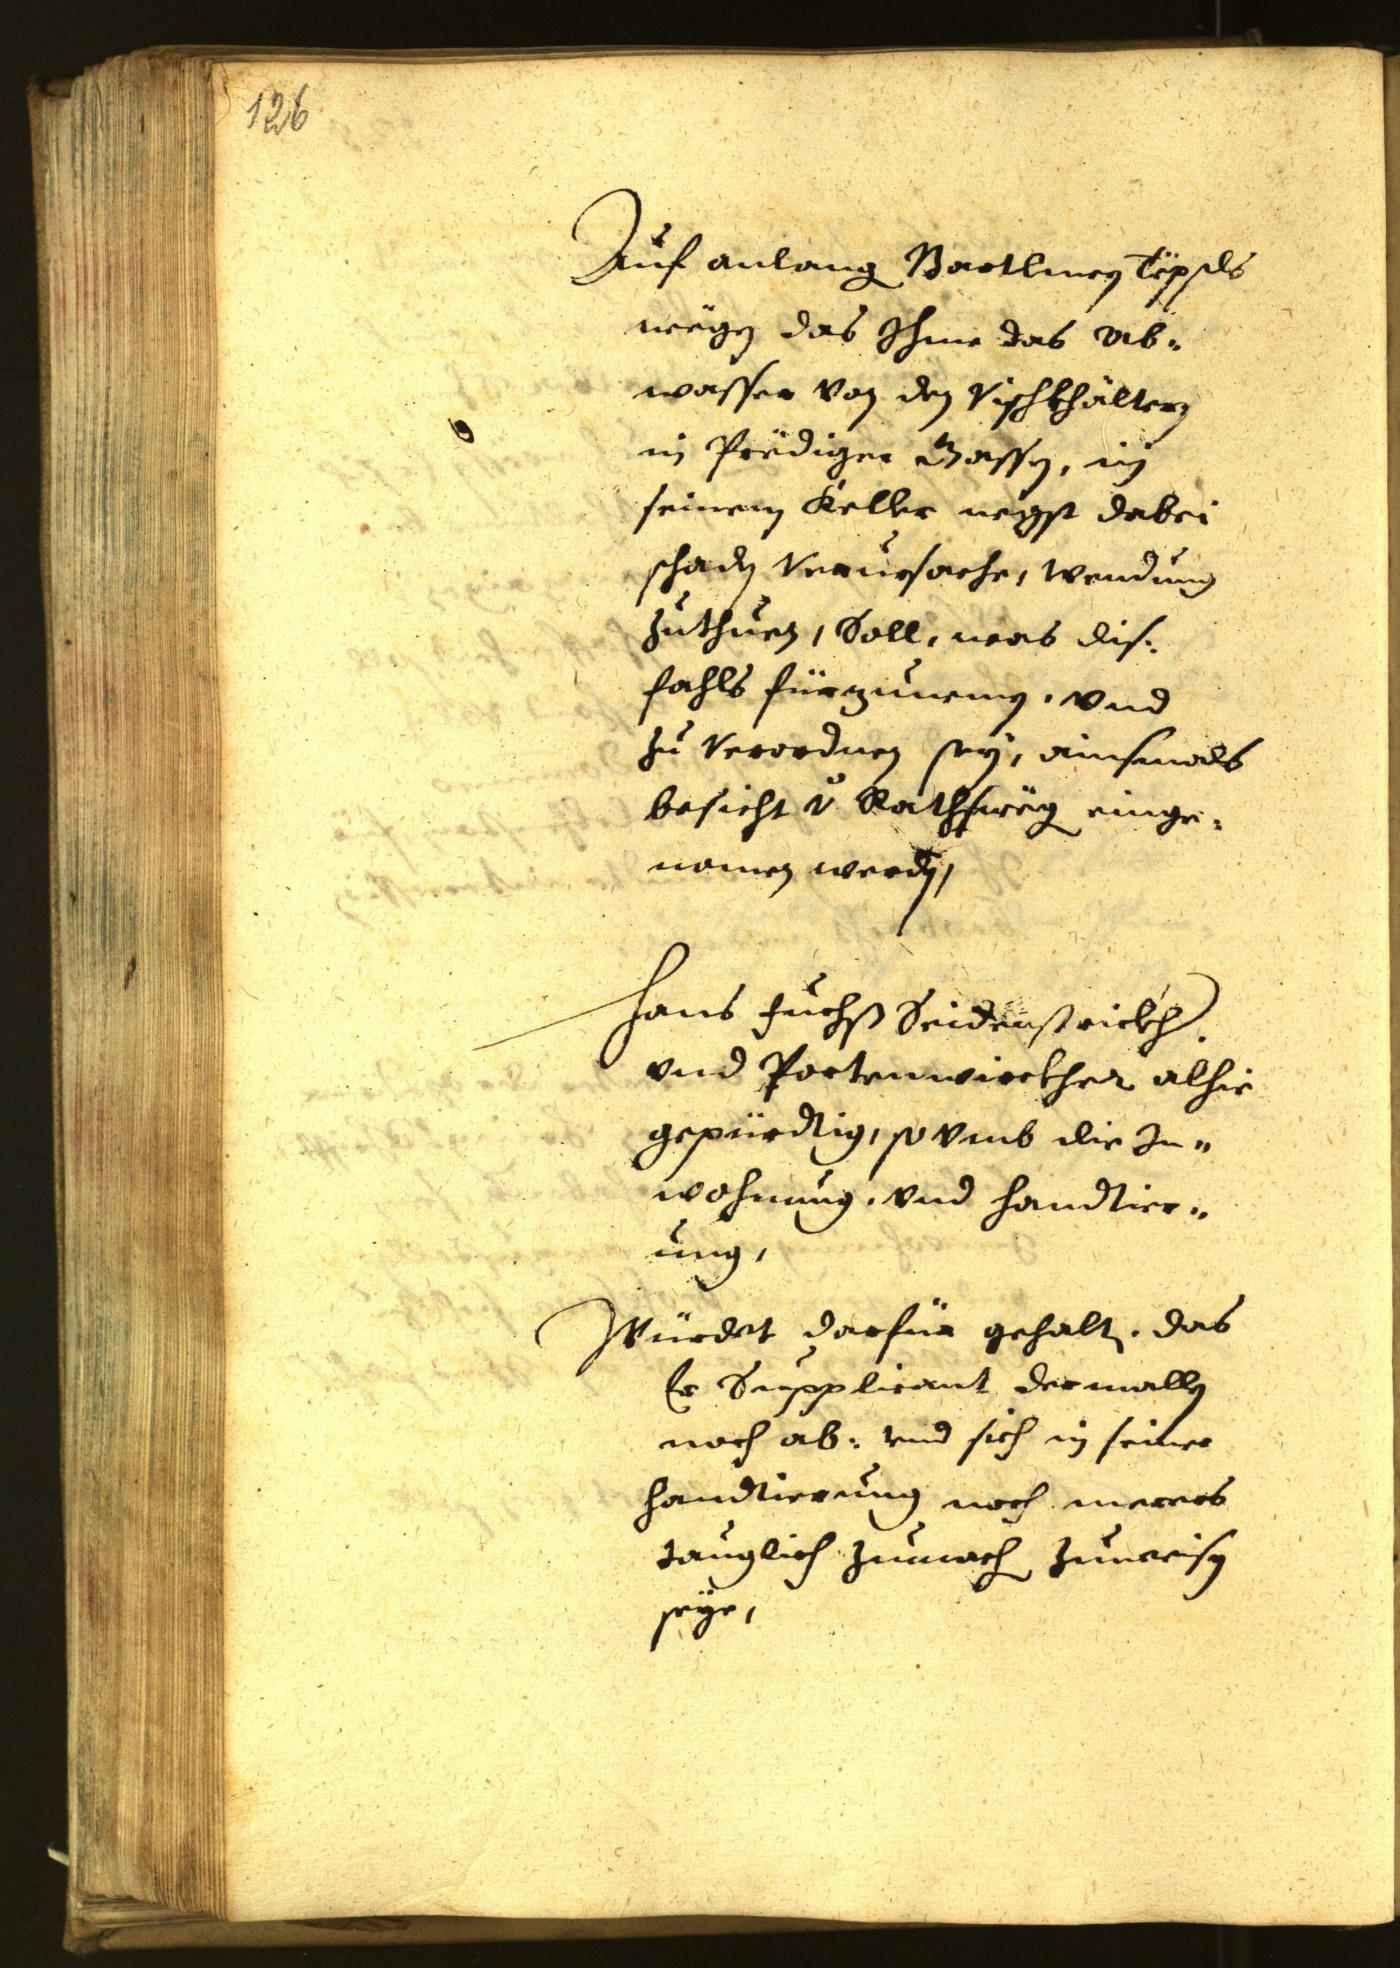 126
Auf anlang Bartlmey Töpsls
wegen das Ihme das Ab-
wasser von den Vischkhältern
in Prediger Gassen, in
seinem Keller negst dabei
schaden verursache, wendung
zuthuen, Soll, was dis-
fahls fürzunemen, vnd
zu verordnen sey, ainsmals
besicht v Rathsweg einge-
nomen werden,
Hans Fuchß Seidenstrickh
vnd Portenwirckher alhie
gepürdtig, so vmb die In-
wohnung, vnd handtier-
ung,
Würdet darfür gehalten, das
Er Supplicant dermallen
noch ab- vnd sich in seiner
handtierung noch merers
tauglich zumachen zuweisen
seye,